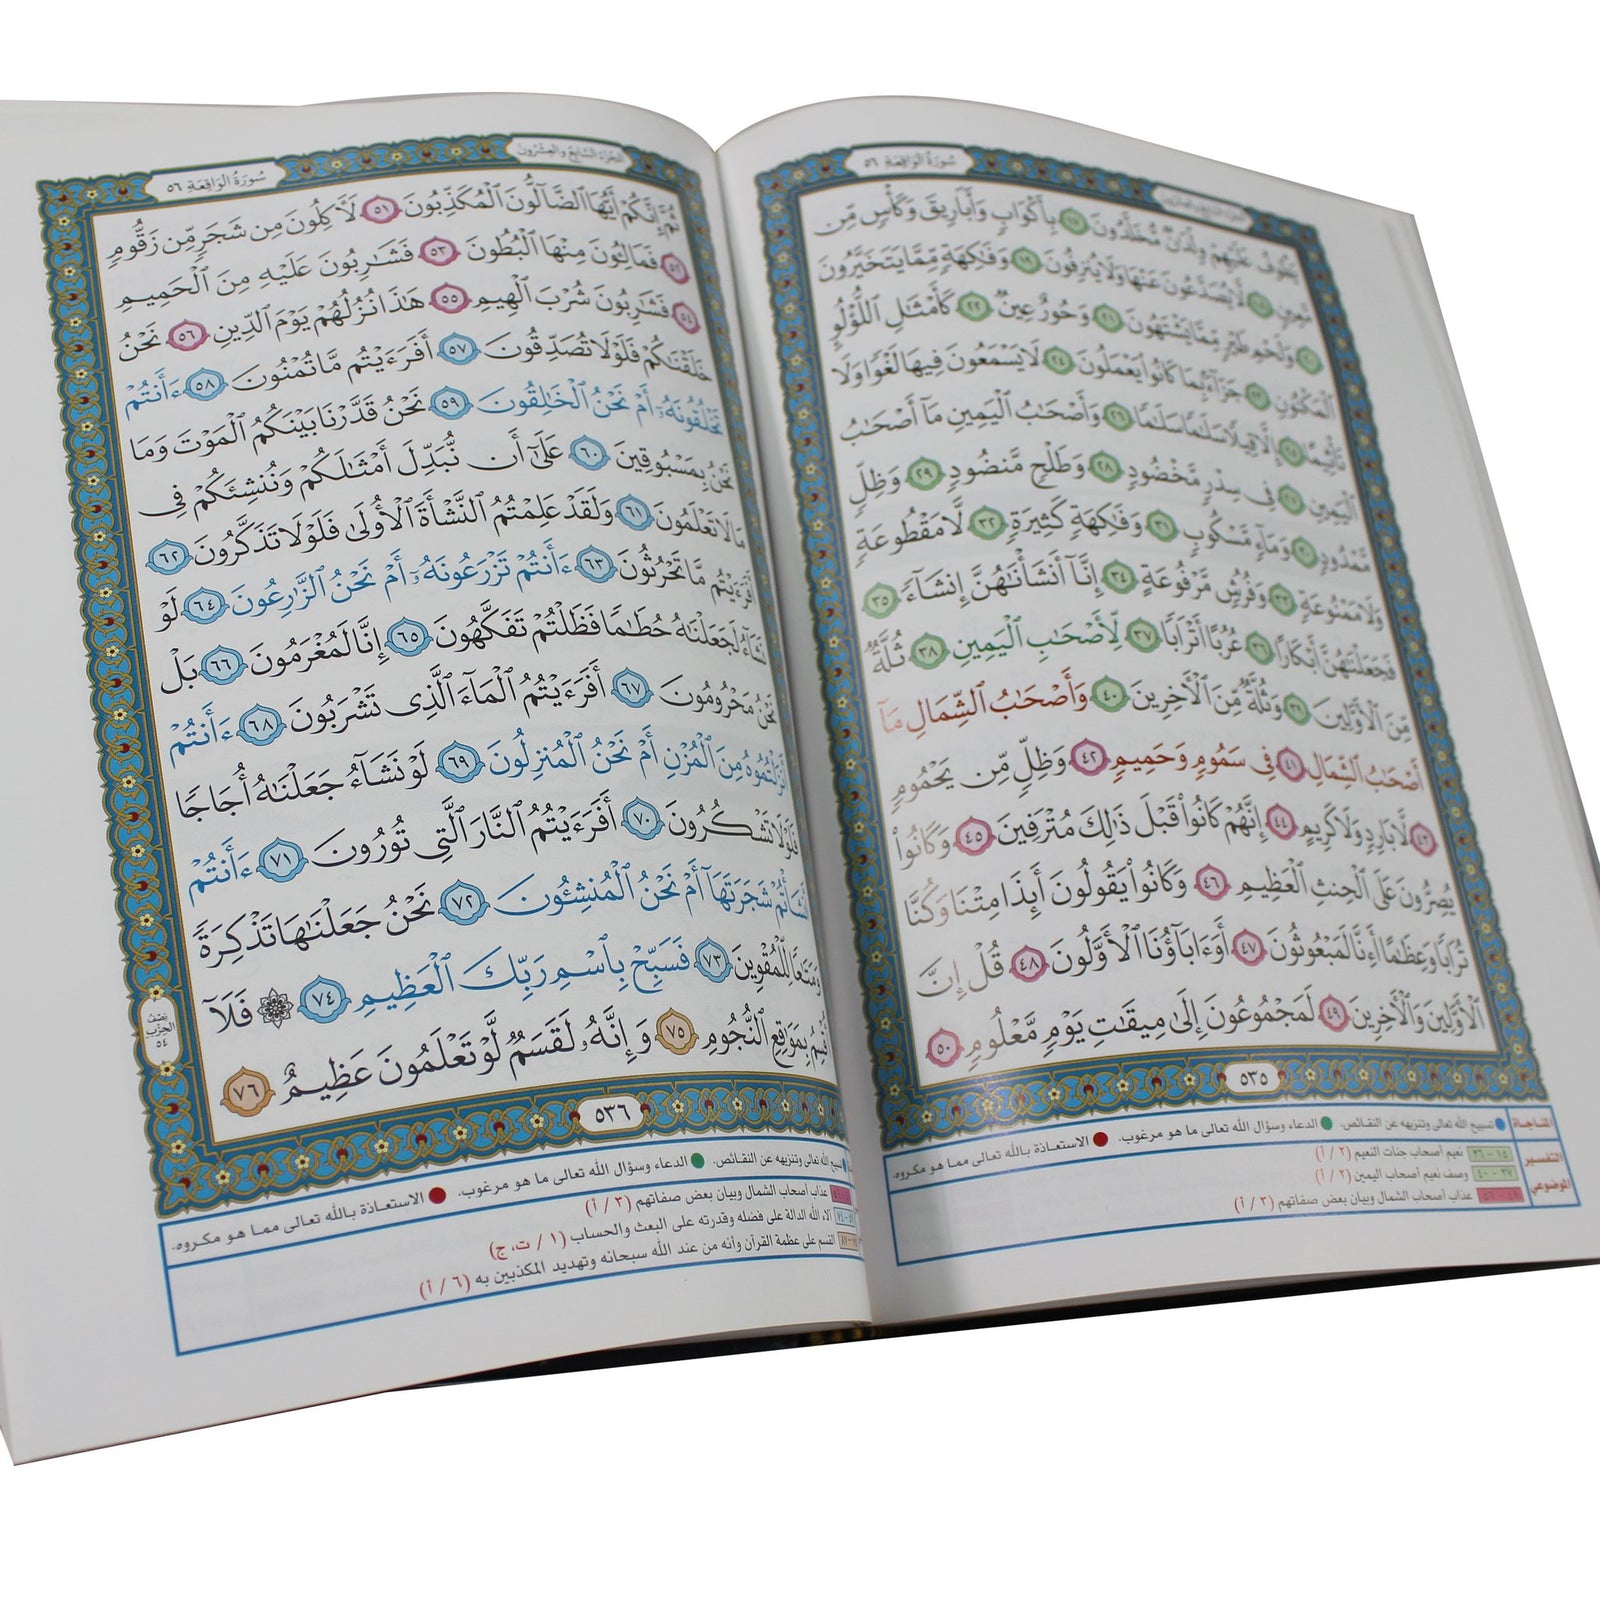 سُورَةُ الوَاقِعَةِ ٥٦
يَطُوفُ عَلَيْهِمْ وِلْدَٰنٌ مُّخَلَّدُونَ ١٧ بِأَكْوَابٍ وَأَبَارِيقَ وَكَأْسٍ مِّن
مَّعِينٍ ١٨ لَّا يُصَدَّعُونَ عَنْهَا وَلَا يُنزِفُونَ ١٩ وَفَٰكِهَةٍ مِّمَّا يَتَخَيَّرُونَ
٢٠ وَلَحْمِ طَيْرٍ مِّمَّا يَشْتَهُونَ ٢١ وَحُورٌ عِينٌ ٢٢ كَأَمْثَٰلِ ٱللُّؤْلُؤِ
ٱلْمَكْنُونِ ٢٣ جَزَآءًۢ بِمَا كَانُوا۟ يَعْمَلُونَ ٢٤ لَا يَسْمَعُونَ فِيهَا لَغْوًا وَلَا
تَأْثِيمًا ٢٥ إِلَّا قِيلًا سَلَٰمًا سَلَٰمًا ٢٦ وَأَصْحَٰبُ ٱلْيَمِينِ مَآ أَصْحَٰبُ
ٱلْيَمِينِ ٢٧ فِى سِدْرٍ مَّخْضُودٍ ٢٨ وَطَلْحٍ مَّنضُودٍ ٢٩ وَظِلٍّ
مَّمْدُودٍ ٣٠ وَمَآءٍ مَّسْكُوبٍ ٣١ وَفَٰكِهَةٍ كَثِيرَةٍ ٣٢ لَّا مَقْطُوعَةٍ
وَلَا مَمْنُوعَةٍ ٣٣ وَفُرُشٍ مَّرْفُوعَةٍ ٣٤ إِنَّآ أَنشَأْنَٰهُنَّ إِنشَآءً ٣٥
فَجَعَلْنَٰهُنَّ أَبْكَارًا ٣٦ عُرُبًا أَتْرَابًا ٣٧ لِّأَصْحَٰبِ ٱلْيَمِينِ ٣٨ ثُلَّةٌ
مِّنَ ٱلْأَوَّلِينَ ٣٩ وَثُلَّةٌ مِّنَ ٱلْأَخِرِينَ ٤٠ وَأَصْحَٰبُ ٱلشِّمَالِ مَآ
أَصْحَٰبُ ٱلشِّمَالِ ٤١ فِى سَمُومٍ وَحَمِيمٍ ٤٢ وَظِلٍّ مِّن يَحْمُومٍ
٤٣ لَّا بَارِدٍ وَلَا كَرِيمٍ ٤٤ إِنَّهُمْ كَانُوا۟ قَبْلَ ذَٰلِكَ مُتْرَفِينَ ٤٥ وَكَانُوا۟
يُصِرُّونَ عَلَى ٱلْحِنثِ ٱلْعَظِيمِ ٤٦ وَكَانُوا۟ يَقُولُونَ أَئِذَا مِتْنَا وَكُنَّا
تُرَابًا وَعِظَٰمًا أَءِنَّا لَمَبْعُوثُونَ ٤٧ أَوَءَابَآؤُنَا ٱلْأَوَّلُونَ ٤٨ قُلْ إِنَّ
ٱلْأَوَّلِينَ وَٱلْأَخِرِينَ ٤٩ لَمَجْمُوعُونَ إِلَىٰ مِيقَٰتِ يَوْمٍ مَّعْلُومٍ ٥٠
٥٣٥
المناجاة ● تسبيح الله تعالى وتنزيهه عن النقائص. ● الدعاء وسؤال الله تعالى ما هو مرغوب. ● الاستعاذة بالله تعالى مما هو مكروه.
التفسير الموضوعي
١٥ - ٢٦ نعيم أصحاب جنات النعيم (٢ / أ)
٢٧ - ٤٠ وصف نعيم أصحاب اليمين (٢ / أ)
٤١ - ٥٦ عذاب أصحاب الشمال وبيان بعض صفاتهم (٣ / أ)
الجزء السابع والعشرون
سُورَةُ الوَاقِعَةِ ٥٦
ثُمَّ إِنَّكُمْ أَيُّهَا ٱلضَّآلُّونَ ٱلْمُكَذِّبُونَ ٥١ لَأَكِلُونَ مِن شَجَرٍ مِّن زَقُّومٍ
٥٢ فَمَالِـُٔونَ مِنْهَا ٱلْبُطُونَ ٥٣ فَشَٰرِبُونَ عَلَيْهِ مِنَ ٱلْحَمِيمِ
٥٤ فَشَٰرِبُونَ شُرْبَ ٱلْهِيمِ ٥٥ هَٰذَا نُزُلُهُمْ يَوْمَ ٱلدِّينِ ٥٦ نَحْنُ
خَلَقْنَٰكُمْ فَلَوْلَا تُصَدِّقُونَ ٥٧ أَفَرَءَيْتُم مَّا تُمْنُونَ ٥٨ ءَأَنتُمْ
تَخْلُقُونَهُۥٓ أَمْ نَحْنُ ٱلْخَٰلِقُونَ ٥٩ نَحْنُ قَدَّرْنَا بَيْنَكُمُ ٱلْمَوْتَ وَمَا
نَحْنُ بِمَسْبُوقِينَ ٦٠ عَلَىٰٓ أَن نُّبَدِّلَ أَمْثَٰلَكُمْ وَنُنشِئَكُمْ فِى
مَا لَا تَعْلَمُونَ ٦١ وَلَقَدْ عَلِمْتُمُ ٱلنَّشْأَةَ ٱلْأُولَىٰ فَلَوْلَا تَذَكَّرُونَ ٦٢
أَفَرَءَيْتُم مَّا تَحْرُثُونَ ٦٣ ءَأَنتُمْ تَزْرَعُونَهُۥٓ أَمْ نَحْنُ ٱلزَّٰرِعُونَ ٦٤ لَوْ
نَشَآءُ لَجَعَلْنَٰهُ حُطَٰمًا فَظَلْتُمْ تَفَكَّهُونَ ٦٥ إِنَّا لَمُغْرَمُونَ ٦٦ بَلْ
نَحْنُ مَحْرُومُونَ ٦٧ أَفَرَءَيْتُمُ ٱلْمَآءَ ٱلَّذِى تَشْرَبُونَ ٦٨ ءَأَنتُمْ
أَنزَلْتُمُوهُ مِنَ ٱلْمُزْنِ أَمْ نَحْنُ ٱلْمُنزِلُونَ ٦٩ لَوْ نَشَآءُ جَعَلْنَٰهُ أُجَاجًا
فَلَوْلَا تَشْكُرُونَ ٧٠ أَفَرَءَيْتُمُ ٱلنَّارَ ٱلَّتِى تُورُونَ ٧١ ءَأَنتُمْ
أَنشَأْتُمْ شَجَرَتَهَآ أَمْ نَحْنُ ٱلْمُنشِـُٔونَ ٧٢ نَحْنُ جَعَلْنَٰهَا تَذْكِرَةً
وَمَتَٰعًا لِّلْمُقْوِينَ ٧٣ فَسَبِّحْ بِٱسْمِ رَبِّكَ ٱلْعَظِيمِ ٧٤ ۞ فَلَآ
أُقْسِمُ بِمَوَٰقِعِ ٱلنُّجُومِ ٧٥ وَإِنَّهُۥ لَقَسَمٌ لَّوْ تَعْلَمُونَ عَظِيمٌ ٧٦
نصف الحزب ٥٤
٥٣٦
تسبيح الله تعالى وتنزيهه عن النقائص. ● الدعاء وسؤال الله تعالى ما هو مرغوب. ● الاستعاذة بالله تعالى مما هو مكروه.
عذاب أصحاب الشمال وبيان بعض صفاتهم (٣ / أ)
٧٤ آلاء الله الدالة على فضله وقدرته على البعث والحساب (١ / ت، ج)
القسم على عظمة القرآن وأنه من عند الله سبحانه وتهديد المكذبين به (٦ / أ)